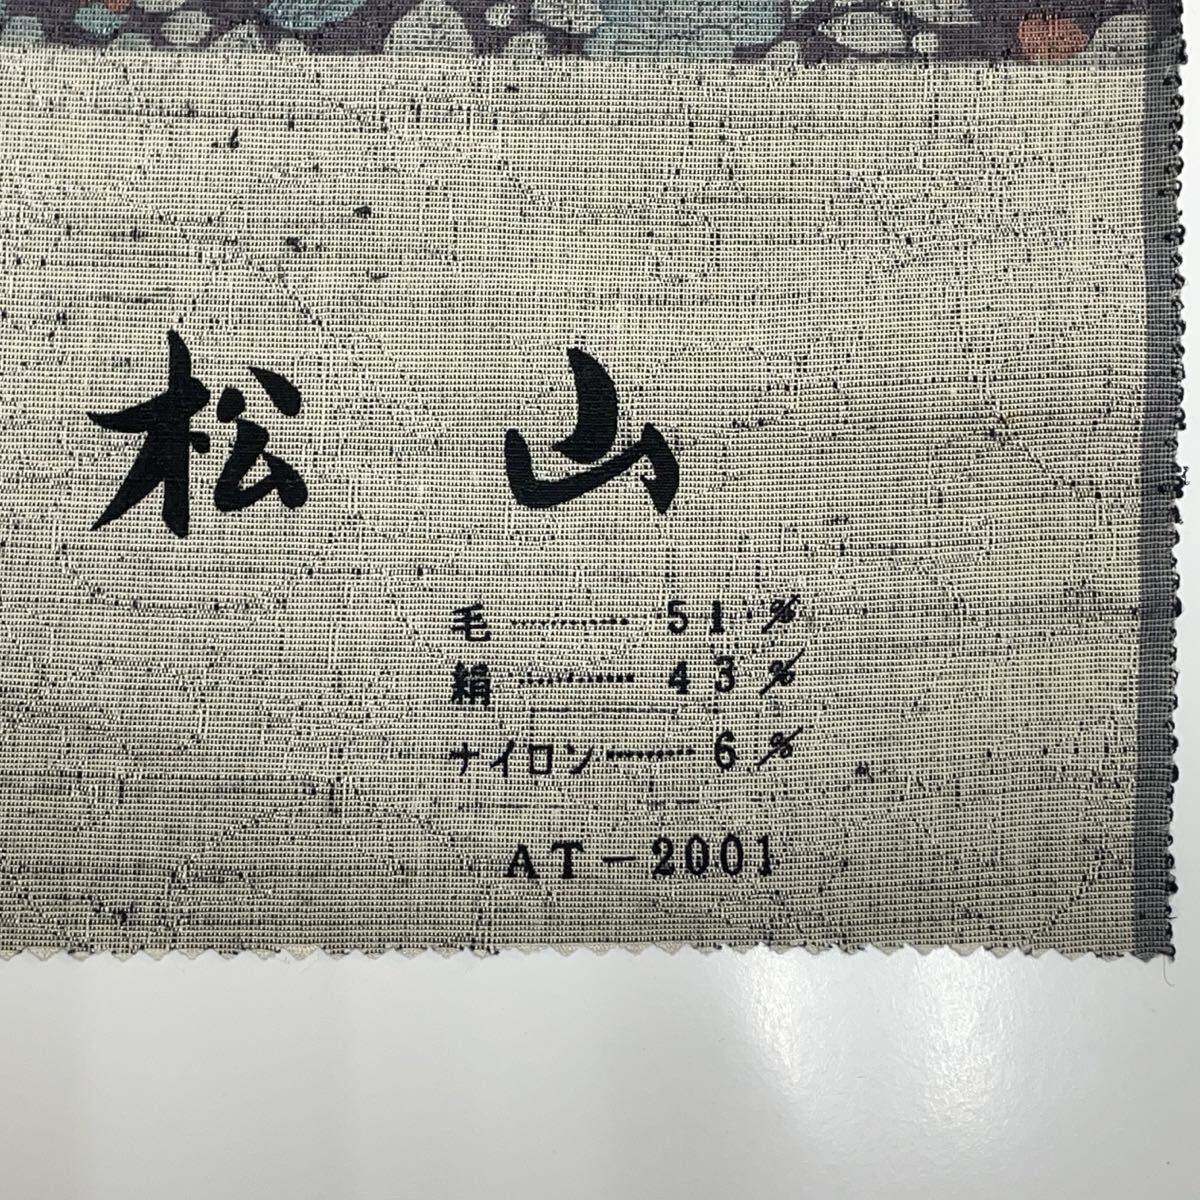 松山
毛…………51%
絹…………43%
ナイロン………6%
AT-2001